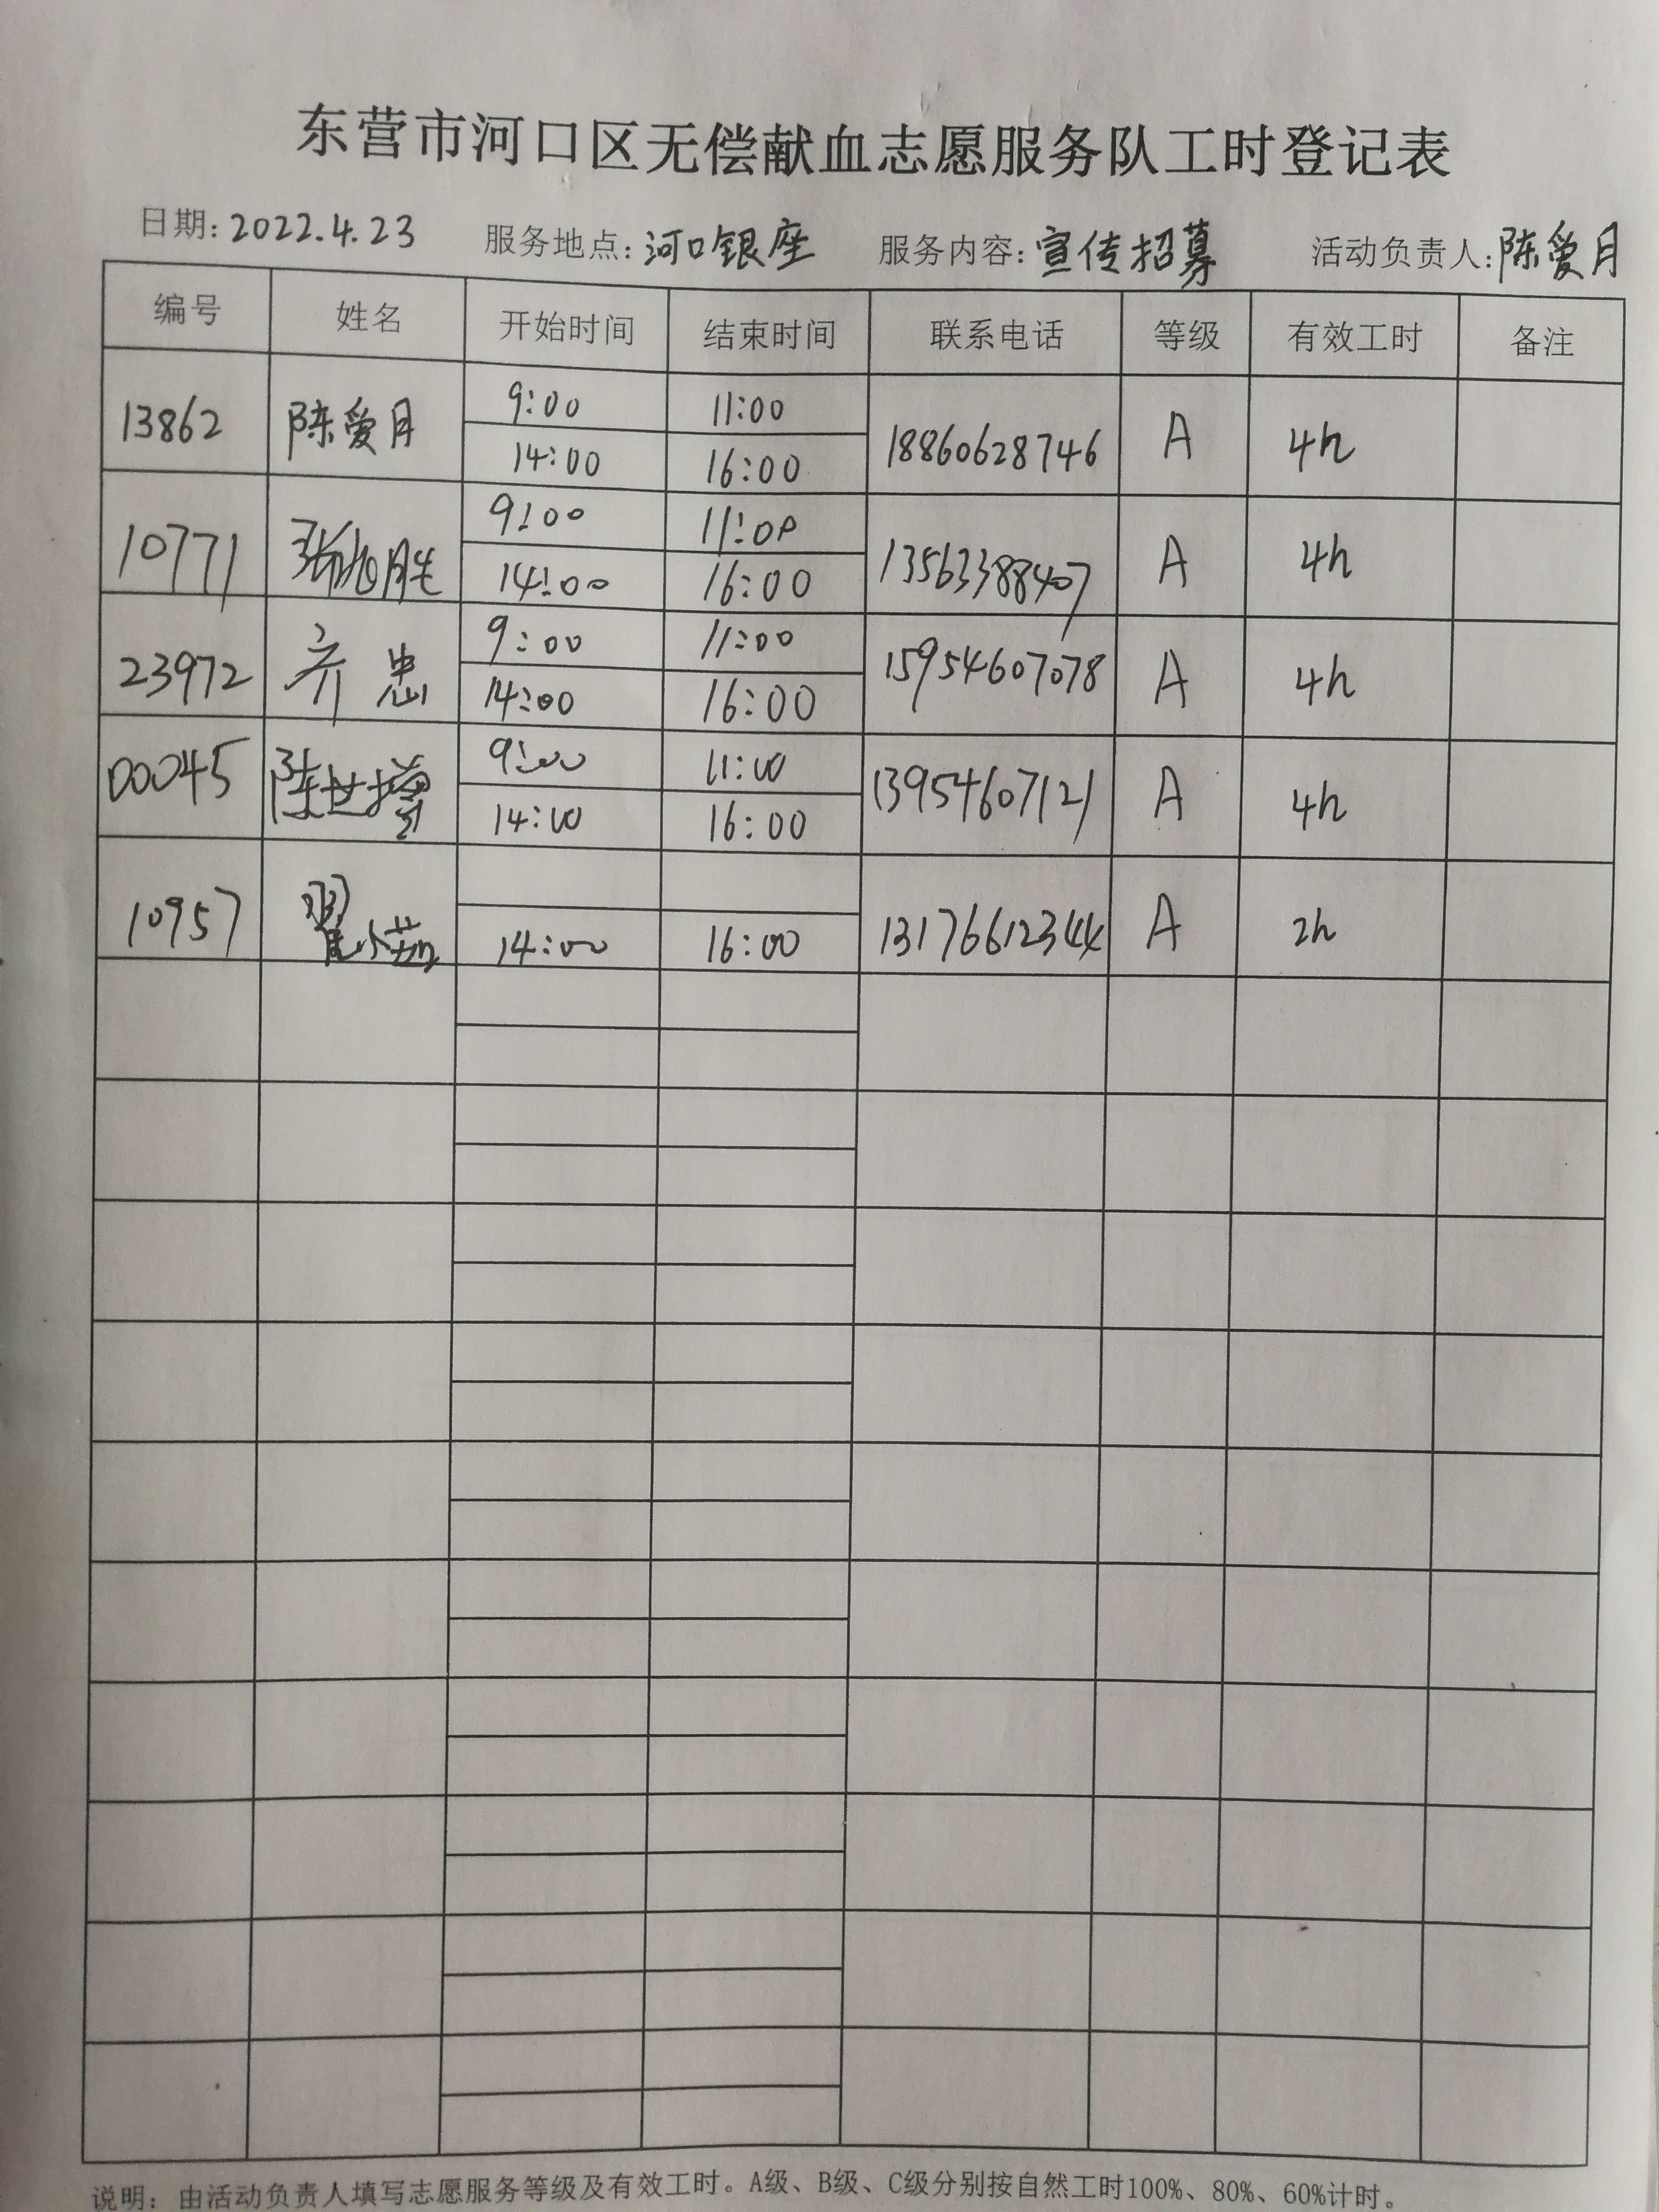 东营市河口区无偿献血志愿服务队工时登记表
日期: 2022.4.23 服务地点: 河口银座 服务内容: 宣传招募 活动负责人: 陈爱月
编号 姓名 开始时间 结束时间 联系电话 等级 有效工时 备注
13862 陈爱月 9:00 11:00 18860628746 A 4h
14:00 16:00
10771 9:00 11:00 13563388407 A 4h
14:00 16:00
23972 齐忠 9:00 11:00 15954607078 A 4h
14:00 16:00
00045 陈世增 9:00 11:00 13954607121 A 4h
14:00 16:00
10957 翟小茹 14:00 16:00 13176612344 A 2h
说明: 由活动负责人填写志愿服务等级及有效工时。A级、B级、C级分别按自然工时100%、80%、60%计时。